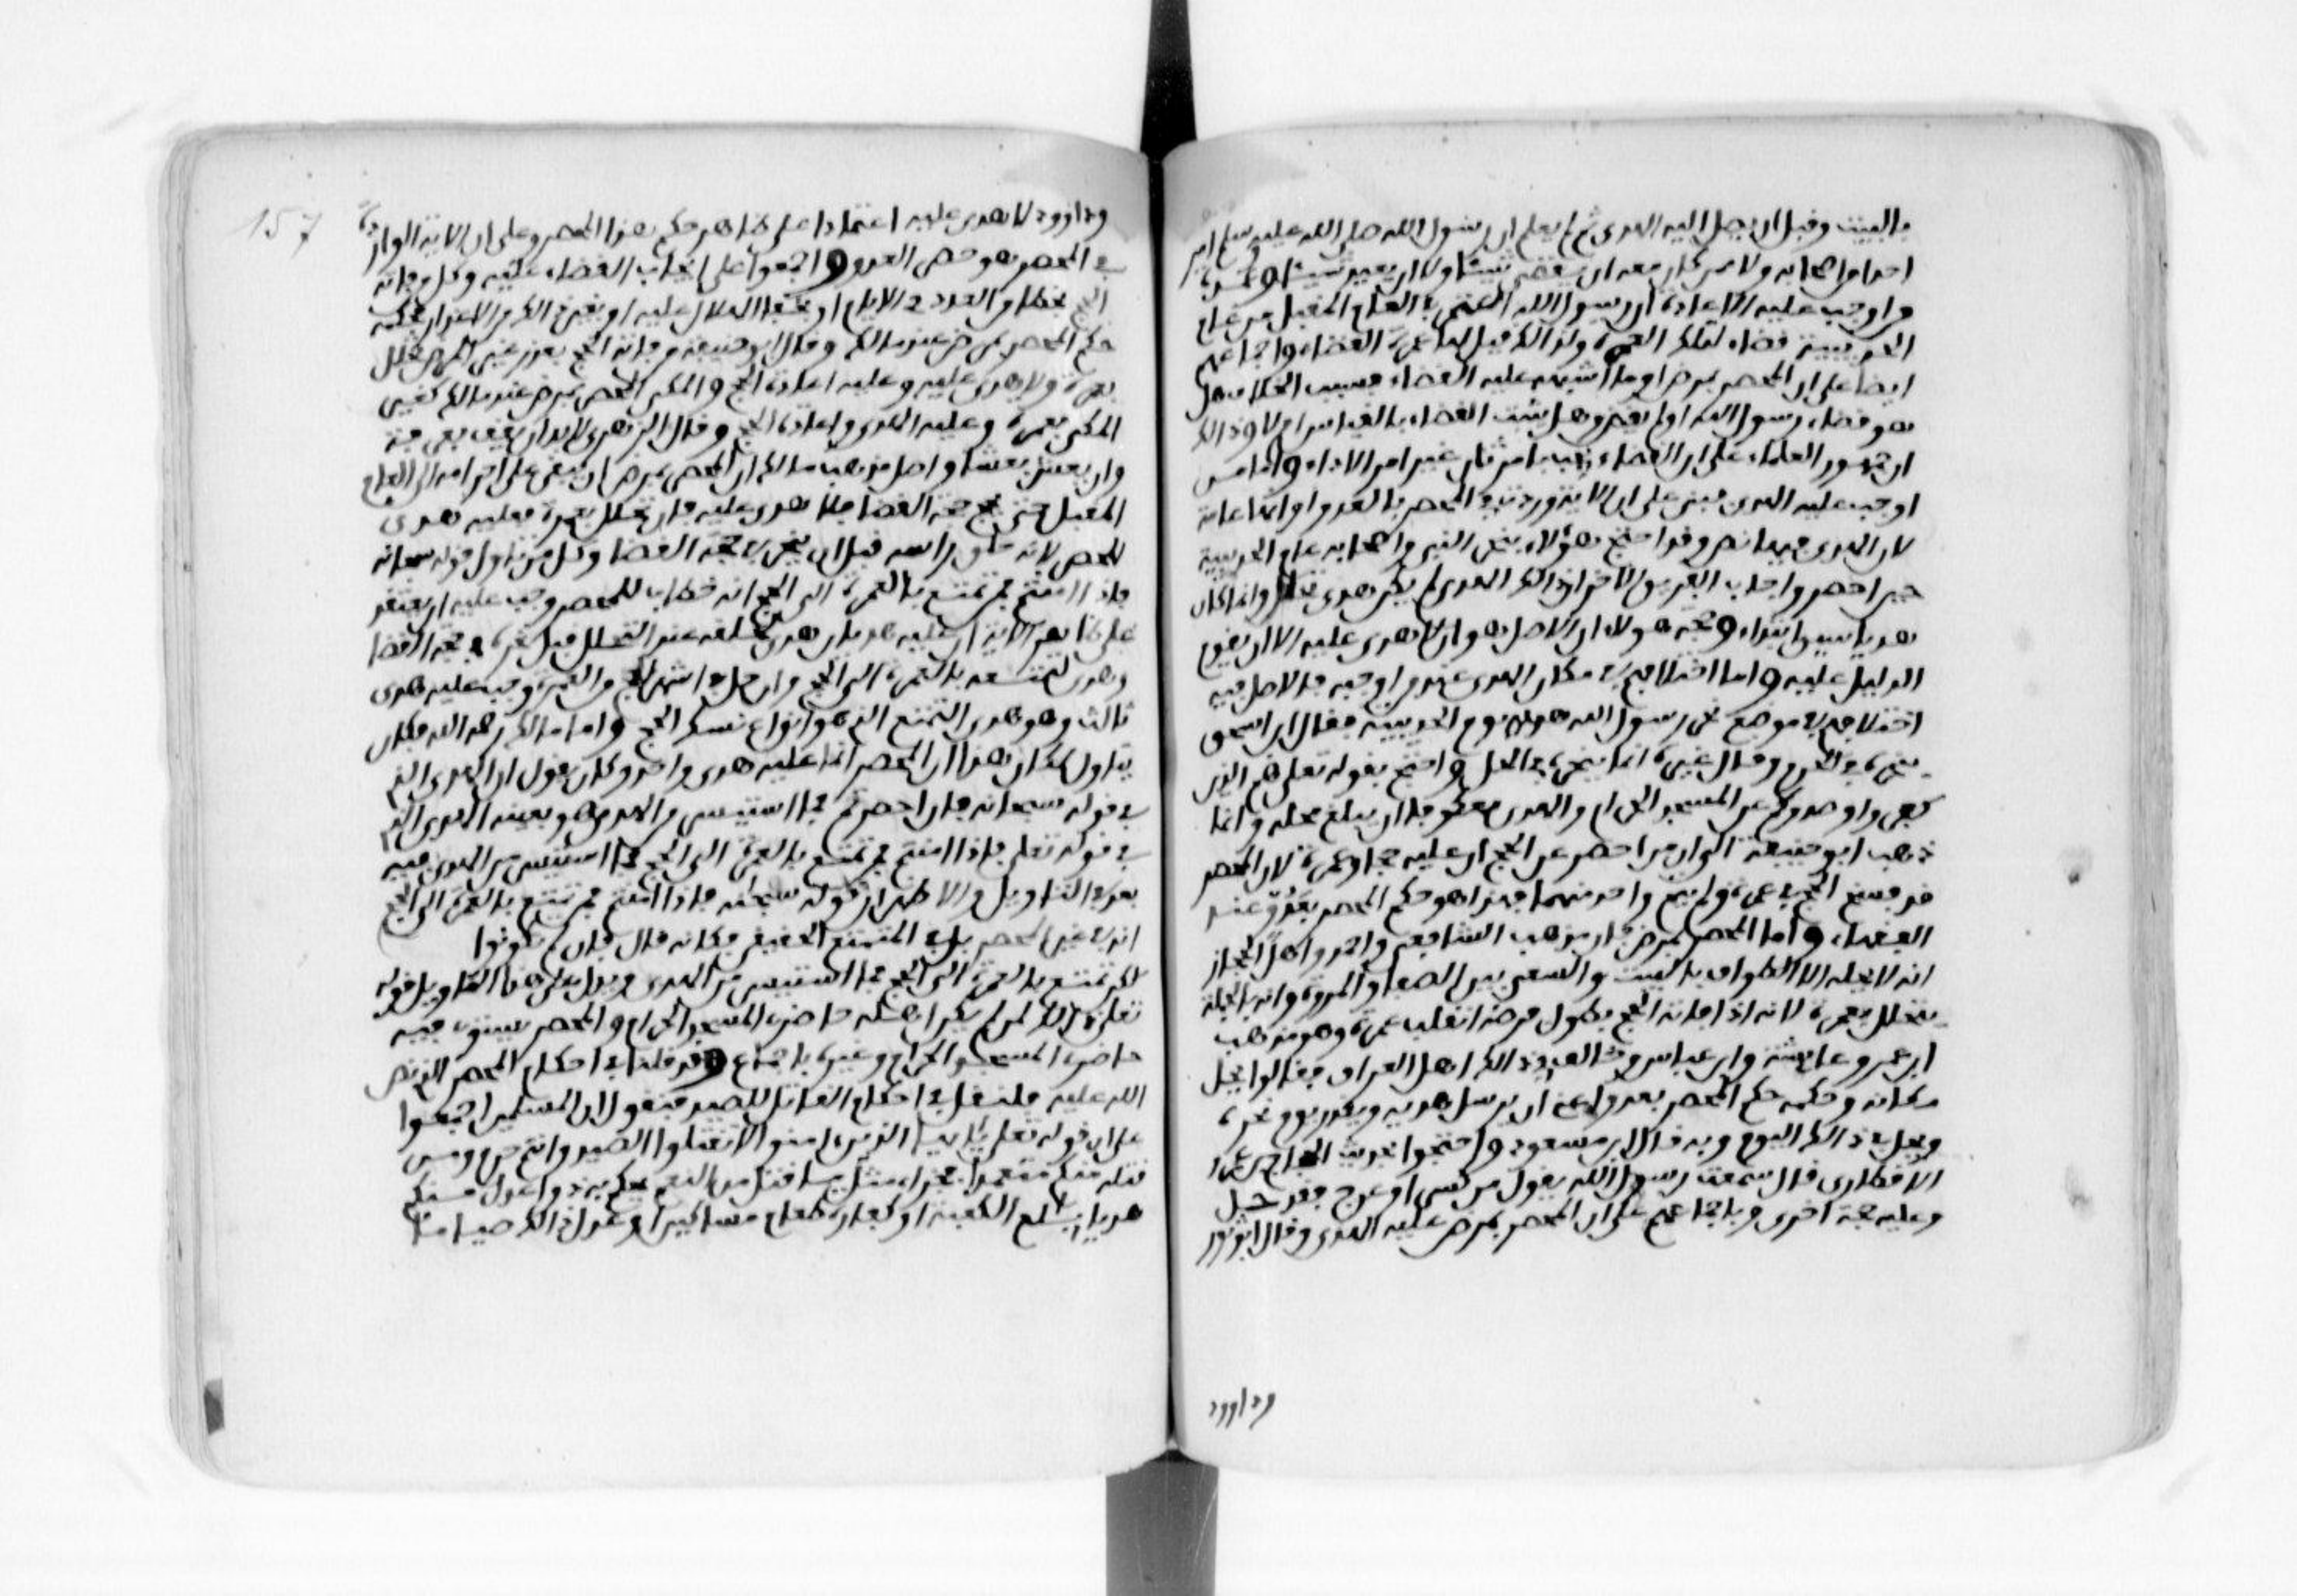 بالبيت وقبل ان يصل اليه الهدى ثم لم يعلم ان رسول الله صلى الله عليه وسلم امر
احدا من اصحابه ولا ممن كان معه ان يقضى شيئا ولا ان يعود لشىء
واوجب عليه الاعادة ان رسول الله اعتمر فى العام المقبل من عام
الحديبية قضاء لتلك العمرة ولذلك قيل لها عمرة القضاء واجماعهم
ايضا على ان المحصر بمرض او ما اشبهه عليه القضاء فسبب الخلاف هل
هو قضاء رسول الله او لم يقض وهل يثبت القضاء بالقياس ام لا وذلك
ان جمهور العلماء على ان القضاء يجب بامر ثان غير امر الاداء واما من
اوجب عليه الهدى فبنى على ان الاية وردت فى المحصر بالعدو او انها عامة
لان الهدى فيها نص وقد احتج هؤلاء بنحر النبى واصحابه عام الحديبية
حين احصروا واجاب الفريق الاخر ان ذلك الهدى لم يكن هدى تحلل وانما كان
هديا سيق ابتداء وحجة هولاء ان الاصل هو ان لا هدى عليه الا ان يقوم
الدليل عليه واما اختلافهم فى مكان الهدى عند من اوجبه فالاصل فيه
اختلافهم فى موضع نحر رسول الله هديه يوم الحديبية فقال ابن اسحق
نحره فى الحرم وقال غيره انما نحره فى الحل واحتج بقوله تعلى هم الذين
كفروا وصدوكم عن المسجد الحرام والهدى معكوفا ان يبلغ محله وانما
ذهب ابو حنيفة الى ان من احصر عن الحج ان عليه حجا وعمرة لان المحصر
قد فسخ الحج فى عمرة ولم يتم واحد منهما فهذا هو حكم المحصر بعدو عند
الفقهاء واما المحصر بمرض فان مذهب الشافعى واحمد واهل الحجاز
انه لا يحله الا الطواف بالبيت والسعى بين الصفا والمروة وانه بالجملة
يتحلل بعمرة لانه اذا فاته الحج بطول مرضه انقلب عمرة وهو مذهب
ابن عمر وعايشة وابن عباس وخالف فى ذلك اهل العراق فقالوا يحل
مكانه وحكمه حكم المحصر بعدو اعنى ان يرسل هديه ويقدر يوم نحره
ويحل فى ذلك اليوم وبه قال ابن مسعود واحتجوا بحديث الحجاج بن عمرو
الانصارى قال سمعت رسول الله يقول من كسر او عرج فقد حل
وعليه حجة اخرى وباجماعهم على ان المحصر بمرض عليه الهدى وقال ابو ثور
وداوود
157
وداوود لا هدى عليه اعتمادا على ظاهر حكم هذا المحصر وعلى ان الاية الواردة
فى المحصر هو حصر العدو واجمعوا على ايجاب القضاء عليه وكل من فاته
الحج بخطا من العدد فى الايام او بخفا الهلال عليه او بغير ذلك من الاعذار فحكمه
حكم المحصر بمرض عند مالك وقال ابو حنيفة من فاته الحج بعذر غير المرض يحل
بعمرة ولا هدى عليه وعليه اعادة الحج والمكى المحصر بمرض عند مالك كغير
المكى يحل بعمرة وعليه الهدى واعادة الحج وقال الزهرى لا بد ان يقف بعرفة
وان نعش نعشا واصل مذهب مالك ان المحصر بمرض ان بقى على احرامه الى العام
المقبل حتى يحج حجة القضا فلا هدى عليه فان تحلل بعمرة فعليه هدى
المحصر لانه حلق راسه قبل ان ينحر فى حجة القضا وكل من تاول قوله سبحانه
فاذا امنتم فمن تمتع بالعمرة الى الحج انه خطاب للمحصر وجب عليه ان يعتقد
على ظاهر الاية ان عليه هديان هدى لحلقه عند التحلل قبل نحره فى حجة القضا
وهدى لتمتعه بالعمرة الى الحج وان حل فى اشهر الحج من العمرة وجب عليه هدى
ثالث وهو هدى التمتع الذى هو انواع نسك الحج واما مالك رحمه الله فكان
يتاول لمكان هذا ان المحصر انما عليه هدى واحد وكان يقول ان الهدى الذى
فى قوله سبحانه فان احصرتم فما استيسر من الهدى هو بعينه الهدى الذى
فى قوله تعلى فاذا امنتم فمن تمتع بالعمرة الى الحج فما استيسر من الهدى فيه
بعد فى التاويل والاظهر ان قوله سبحانه فاذا امنتم فمن تمتع بالعمرة الى الحج
انه فى غير المحصر بل فى المتمتع الحقيقى فكانه قال فان لم تكونوا
لكن تمتع بالعمرة الى الحج فما استيسر من الهدى ويدل على هذا التاويل قوله
تعلى ذلك لمن لم يكن اهله حاضرى المسجد الحرام والمحصر يستوى فيه
حاضرى المسجد الحرام وغيره باجماع وقد قلنا فى احكام المحصر الذى نص
الله عليه فلنقل فى احكام القاتل للصيد فنقول ان المسلمين اجمعوا
على ان قوله تعلى يا ايها الذين امنوا لا تقتلوا الصيد وانتم حرم ومن
قتله منكم متعمدا فجزاء مثل ما قتل من النعم يحكم به ذوا عدل منكم
هديا بالغ الكعبة او كفارة طعام مساكين او عدل ذلك صياما